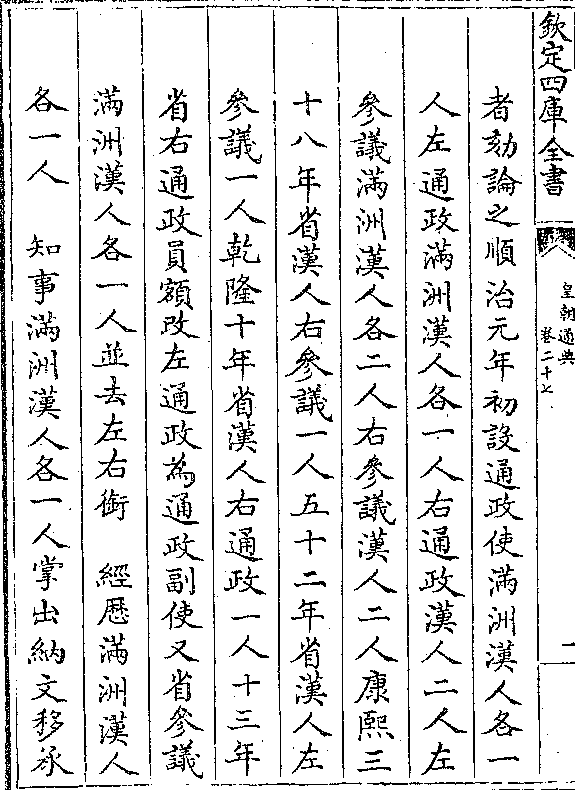 欽定四庫全書
皇朝通典
卷二十七
二
者劾論之順治元年初設通政使滿洲漢人各一
人左通政滿洲漢人各一人右通政漢人二人左
參議滿洲漢人各二人右參議漢人二人康熙三
十八年省漢人右參議一人五十二年省漢人左
參議一人乾隆十年省漢人右通政一人十三年
省右通政員額改左通政為通政副使又省參議
滿洲漢人各一人並去左右銜 經歷滿洲漢人
各一人 知事滿洲漢人各一人掌出納文移承